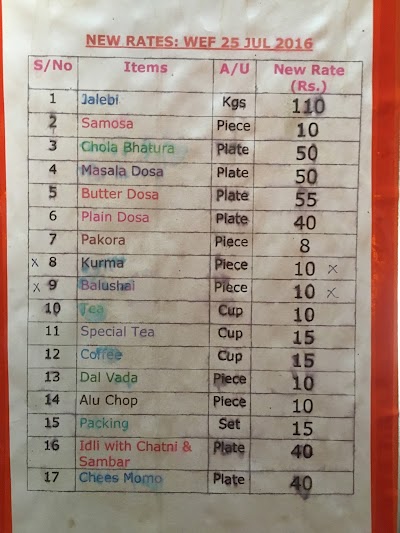 NEW RATES: WEF 25 JUL 2016
S/No Items A/U New Rate (Rs.)
1 Jalebi Kgs 110
2 Samosa Piece 10
3 Chola Bhatura Plate 50
4 Masala Dosa Plate 50
5 Butter Dosa Plate 55
6 Plain Dosa Plate 40
7 Pakora Piece 8
x 8 Kurma Piece 10 x
x 9 Balushai Piece 10 x
10 Tea Cup 10
11 Special Tea Cup 15
12 Coffee Cup 15
13 Dal Vada Piece 10
14 Alu Chop Piece 10
15 Packing Set 15
16 Idli with Chatni & Sambar Plate 40
17 Chees Momo Plate 40